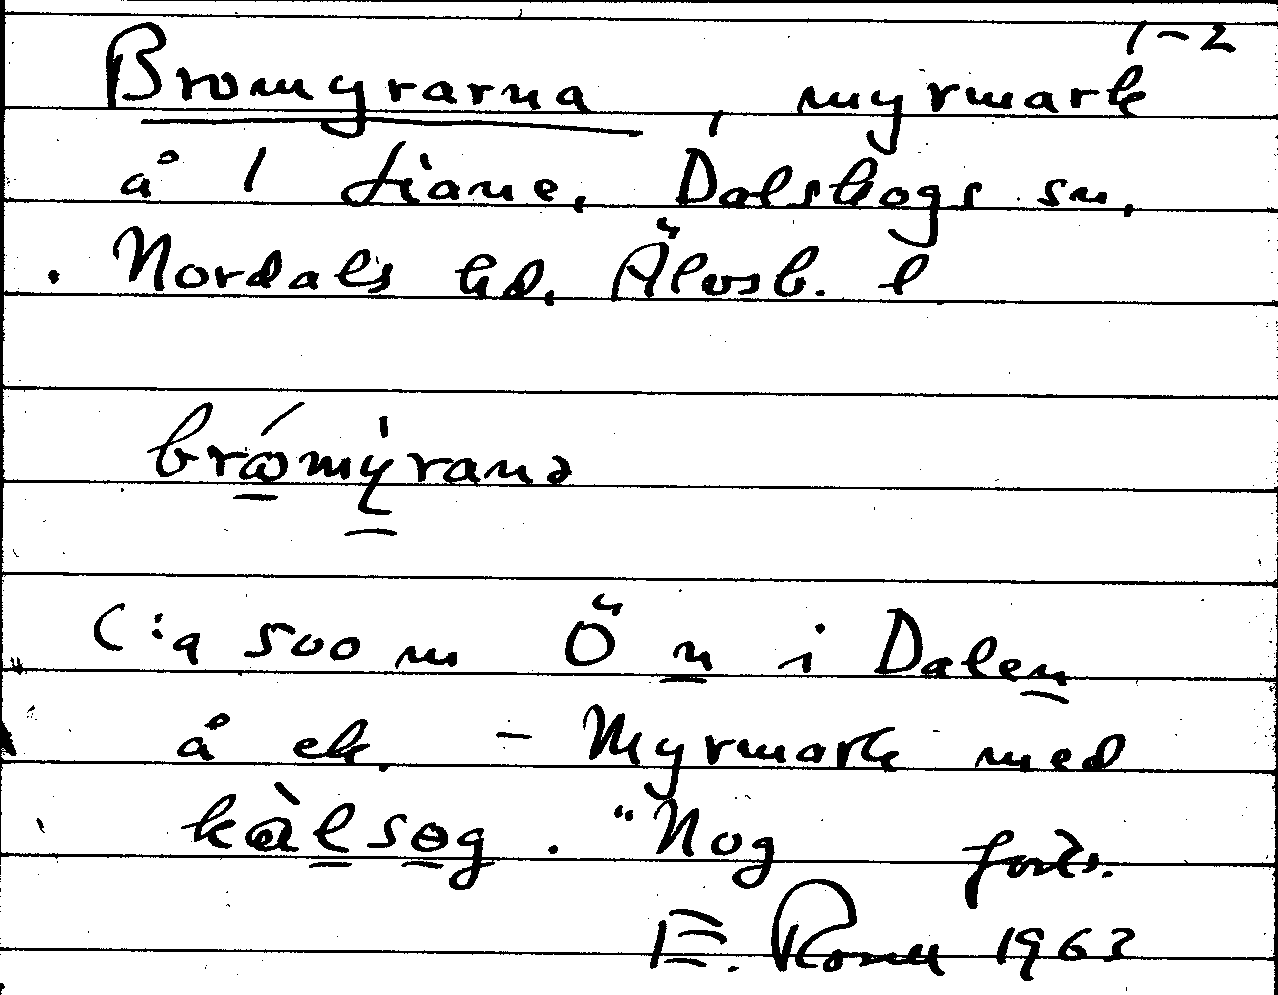 1-2
Bromyrarna, myrmark
å 1 Liane, Dalskogs sn,
Nordals hd, Älvsb. l
C:a 500 m Ö n i Dalen
å ek. - Myrmark med
"Nog forts.
E. 1963